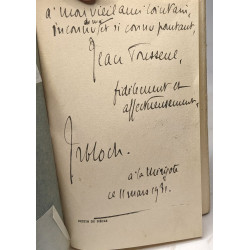 à mon vieil ami lointain,
inconnu et si connu pourtant,
Jean Tousseul,
fidèlement et
affectueusement,
JRBloch.
à la Mérigote
ce 11 mars 1931.
DESTIN DU SIÈCLE